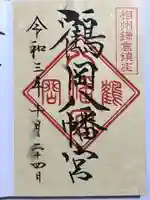 相州鎌倉鎮座
鶴岡八幡宮
令和三年十月二十四日